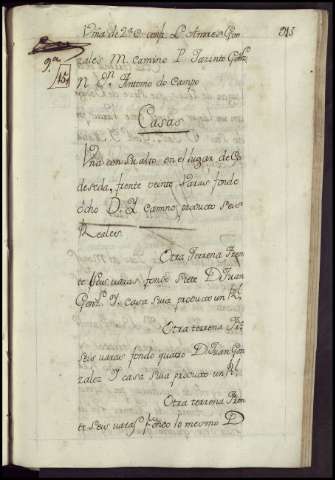 Viña de 2ª C. confª. L. Andres Gon 945
zales M. camino P. Jacinto Gonz
N. Dn. Antonio do Campo
Casas
Vna con su alto en el lugar de Co
deseda, frente veinte varas fondo
ocho D. Y. Camino, producto seis
Reales
Otra Terrena fren
te seis varas fondo siete D. Juan
Gonz. Y. casa suia producto un Rl.
Otra terrena Fte.
seis varas fondo quatro D. Juan Gon
zalez Y. casa suia producto un Rl.
Otra terrena Fren
te seis varas fondo lo mesmo D